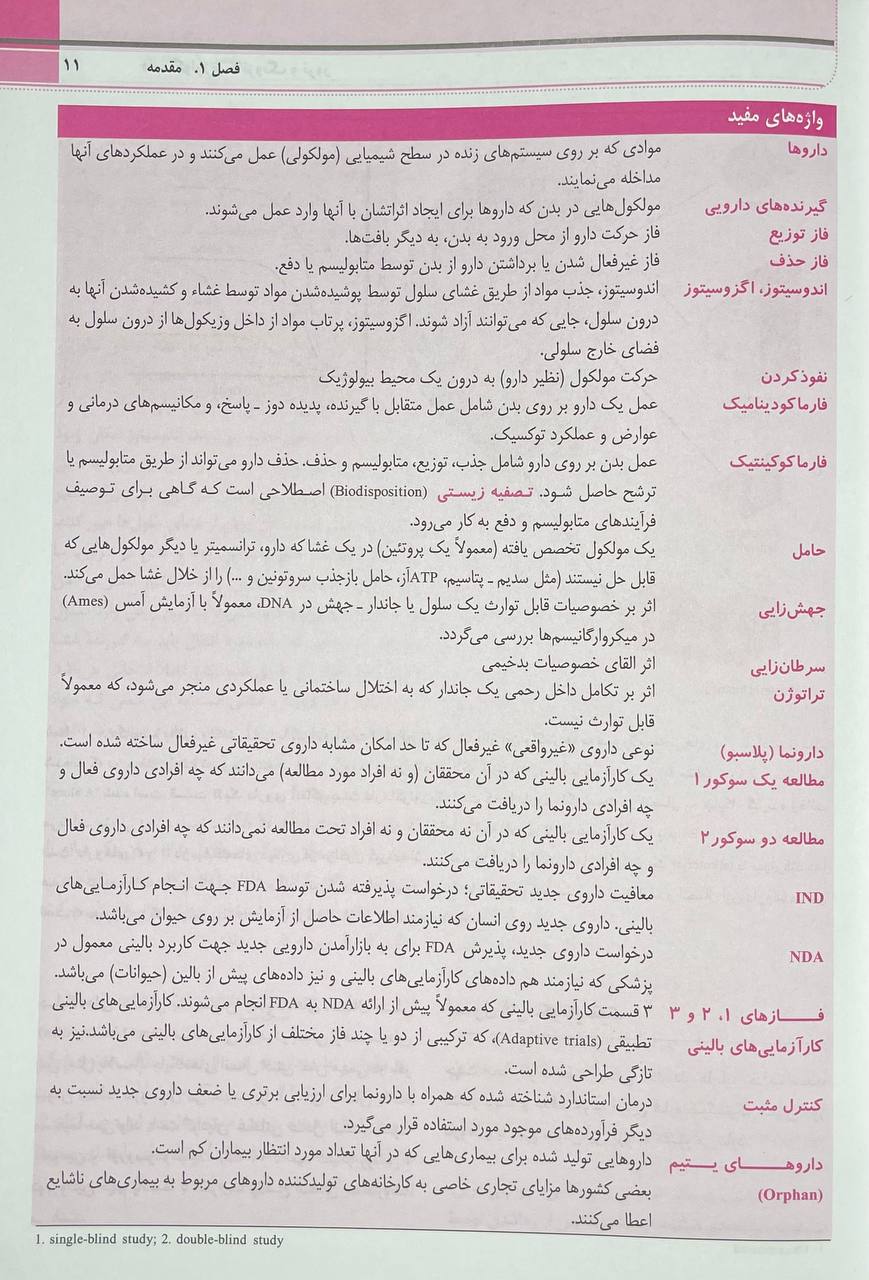 فصل ۱. مقدمه ۱۱
واژه‌های مفید
داروها موادی که بر روی سیستم‌های زنده در سطح شیمیایی (مولکولی) عمل می‌کنند و در عملکردهای آنها
مداخله می‌نمایند.
گیرنده‌های دارویی مولکول‌هایی در بدن که داروها برای ایجاد اثراتشان با آنها وارد عمل می‌شوند.
فاز توزیع فاز حرکت دارو از محل ورود به بدن، به دیگر بافت‌ها.
فاز حذف فاز غیرفعال شدن یا برداشتن دارو از بدن توسط متابولیسم یا دفع.
اندوسیتوز، اگزوسیتوز اندوسیتوز، جذب مواد از طریق غشای سلول توسط پوشیده‌شدن مواد توسط غشاء و کشیده‌شدن آنها به
درون سلول، جایی که می‌توانند آزاد شوند. اگزوسیتوز، پرتاب مواد از داخل وزیکول‌ها از درون سلول به
فضای خارج سلولی.
نفوذکردن حرکت مولکول (نظیر دارو) به درون یک محیط بیولوژیک
فارماکودینامیک عمل یک دارو بر روی بدن شامل عمل متقابل با گیرنده، پدیده دوز ـ پاسخ، و مکانیسم‌های درمانی و
عوارض و عملکرد توکسیک.
فارماکوکینتیک عمل بدن بر روی دارو شامل جذب، توزیع، متابولیسم و حذف. حذف دارو می‌تواند از طریق متابولیسم یا
ترشح حاصل شود. تصفیه زیستی (Biodisposition) اصطلاحی است که گاهی برای توصیف
فرآیندهای متابولیسم و دفع به کار می‌رود.
حامل یک مولکول تخصص یافته (معمولاً یک پروتئین) در یک غشا که دارو، ترانسمیتر یا دیگر مولکول‌هایی که
قابل حل نیستند (مثل سدیم ـ پتاسیم، ATPآز، حامل بازجذب سروتونین و ...) را از خلال غشا حمل می‌کند.
جهش‌زایی اثر بر خصوصیات قابل توارث یک سلول یا جاندار ـ جهش در DNA، معمولاً با آزمایش آمس (Ames)
در میکروارگانیسم‌ها بررسی می‌گردد.
سرطان‌زایی اثر القای خصوصیات بدخیمی
تراتوژن اثر بر تکامل داخل رحمی یک جاندار که به اختلال ساختمانی یا عملکردی منجر می‌شود، که معمولاً
قابل توارث نیست.
دارونما (پلاسبو) نوعی داروی «غیرواقعی» غیرفعال که تا حد امکان مشابه داروی تحقیقاتی غیرفعال ساخته شده است.
مطالعه یک سوکور۱ یک کارآزمایی بالینی که در آن محققان (و نه افراد مورد مطالعه) می‌دانند که چه افرادی داروی فعال و
چه افرادی دارونما را دریافت می‌کنند.
مطالعه دو سوکور۲ یک کارآزمایی بالینی که در آن نه محققان و نه افراد تحت مطالعه نمی‌دانند که چه افرادی داروی فعال
و چه افرادی دارونما را دریافت می‌کنند.
IND معافیت داروی جدید تحقیقاتی؛ درخواست پذیرفته شدن توسط FDA جهت انجام کارآزمایی‌های
بالینی. داروی جدید روی انسان که نیازمند اطلاعات حاصل از آزمایش بر روی حیوان می‌باشد.
NDA درخواست داروی جدید، پذیرش FDA برای به بازارآمدن دارویی جدید جهت کاربرد بالینی معمول در
پزشکی که نیازمند هم داده‌های کارآزمایی‌های بالینی و نیز داده‌های پیش از بالین (حیوانات) می‌باشد.
فـازهای ۱، ۲ و ۳ ۳ قسمت کارآزمایی بالینی که معمولاً پیش از ارائه NDA به FDA انجام می‌شوند. کارآزمایی‌های بالینی
کارآزمایی‌های بالینی تطبیقی (Adaptive trials)، که ترکیبی از دو یا چند فاز مختلف از کارآزمایی‌های بالینی می‌باشد.نیز به
تازگی طراحی شده است.
کنترل مثبت درمان استاندارد شناخته شده که همراه با دارونما برای ارزیابی برتری یا ضعف داروی جدید نسبت به
دیگر فرآورده‌های موجود مورد استفاده قرار می‌گیرد.
داروهـای یـتیم داروهایی تولید شده برای بیماری‌هایی که در آنها تعداد مورد انتظار بیماران کم است.
(Orphan) بعضی کشورها مزایای تجاری خاصی به کارخانه‌های تولیدکننده داروهای مربوط به بیماری‌های ناشایع
اعطا می‌کنند.
1. single-blind study; 2. double-blind study